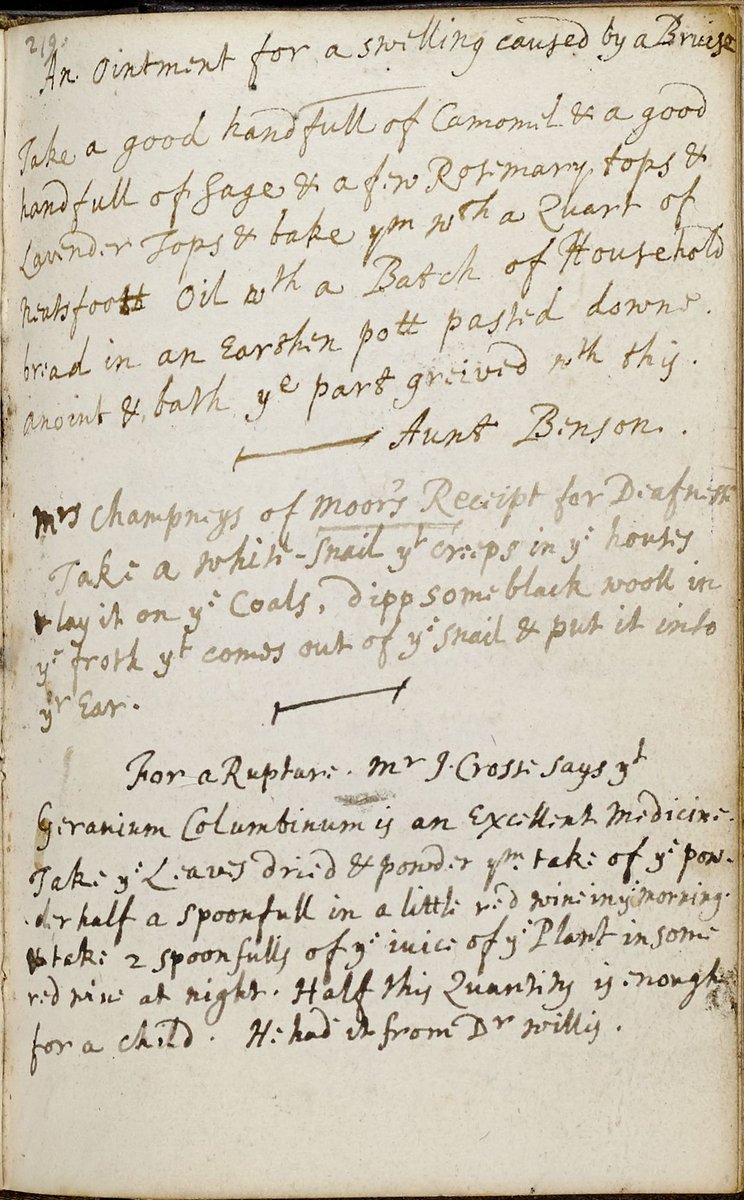 219.
An Ointment for a swelling caused by a Bruise
Take a good handfull of Camomil & a good
handfull of Sage & a few Rosemary tops &
Lavender Tops & bake ym wth a Quart of
neatsfoott Oil wth a Batch of Household
bread in an Earthen pott pasted downe.
anoint & bath ye part greived wth this.
Aunt Benson.
Mrs Champneys of Moor's Receipt for Deafness
Take a white-snail yt creeps in ye houses
& lay it on ye Coals, dipp some black wooll in
ye froth yt comes out of ye snail & put it into
yr Ear.
For a Rupture. Mr J. Crosse says yt
Geranium Columbinum is an Excellent Medicine.
Take ye Leaves dried & powder ym take of ye pow-
der half a spoonfull in a little red wine in ye morning.
& take 2 spoonfulls of ye iuice of ye Plant in some
red wine at night. Half this Quantity is enough
for a child. He had it from Dr Willis.